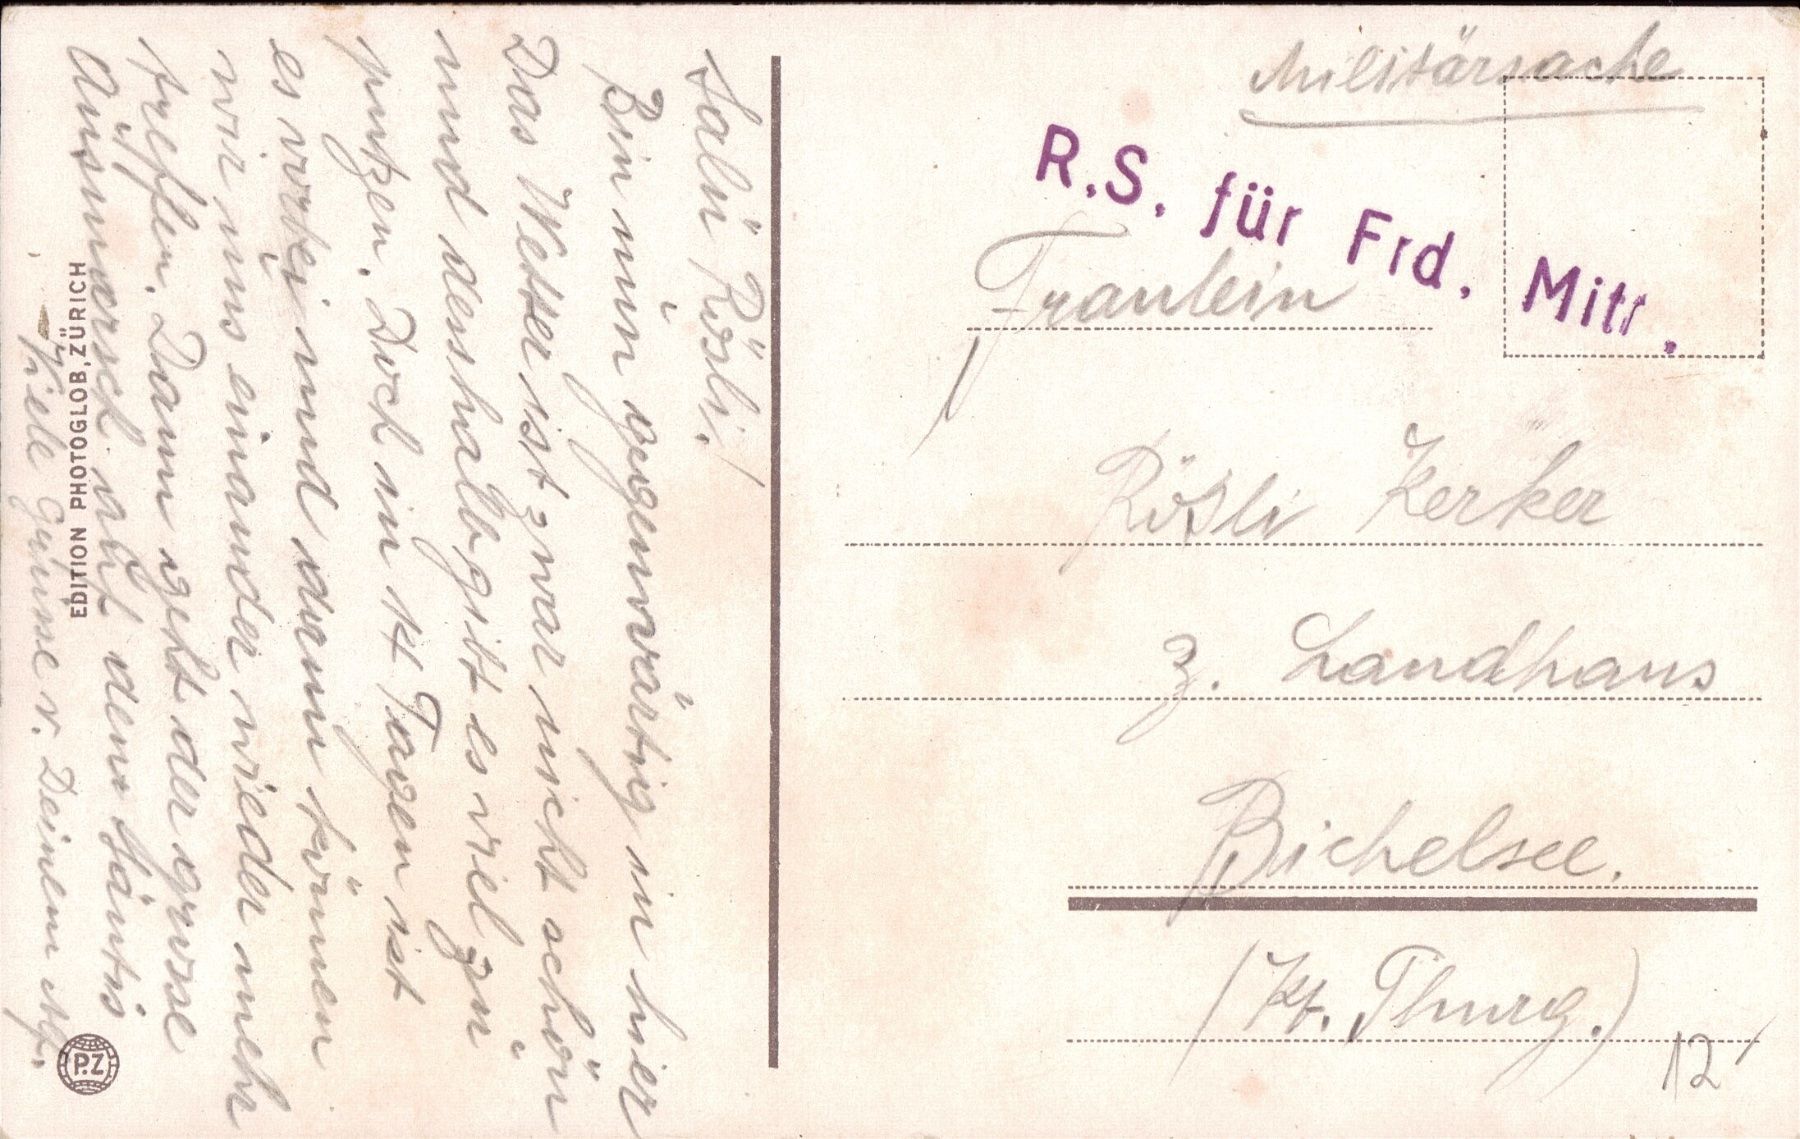 Salü Rösli!
Bin nun gegenwärtig in hier
Das Wetter ist zwar nicht schön
und desshalb gitt es viel zu
putzen. Doch in 14 Tagen ist
es vorbei und dann können
wir uns einander wieder mehr
treffen. Dann geht der grosse
Ausmarsch auf den Säntis
Viele Grüsse v. Deinem
EDITION PHOTOGLOB, ZÜRICH
P.Z
Militärsache
R.S. für Frd. Mitr.
Fräulein
Rösli Kerker
z. Landhaus
Bichelsee.
(Kt. Thurg.)
12